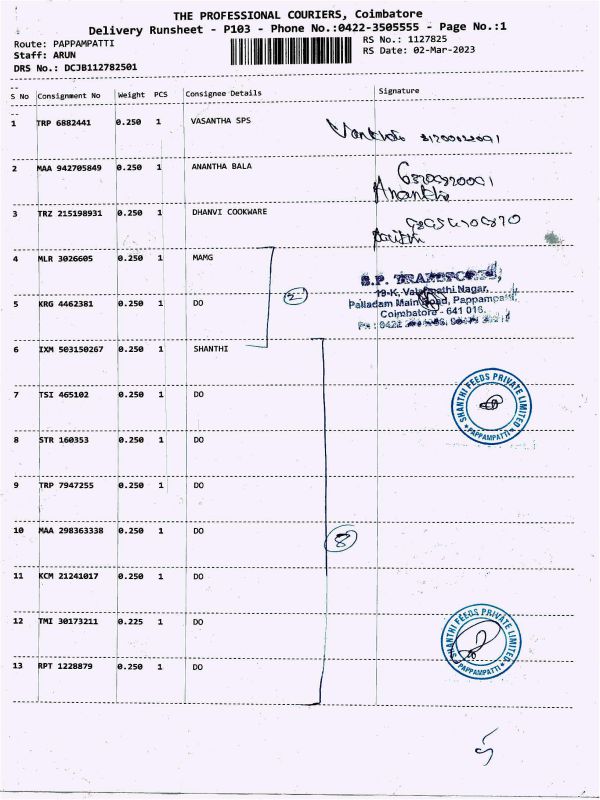 THE PROFESSIONAL COURIERS, Coimbatore
Delivery Runsheet - P103 - Phone No.:0422-3505555 - Page No.:1
Route: PAPPAMPATTI RS No.: 1127825
Staff: ARUN RS Date: 02-Mar-2023
DRS No.: DCJB112782501
S No Consignment No Weight PCS Consignee Details Signature
1 TRP 6882441 0.250 1 VASANTHA SPS
2 MAA 942705849 0.250 1 ANANTHA BALA
3 TRZ 215198931 0.250 1 DHANVI COOKWARE
4 MLR 3026605 0.250 1 MAMG
S.P. TRANSPORTS,
19-K, Nagar,
5 KRG 4462381 0.250 1 DO 2
Palladam Main Road, Pappampatti,
Coimbatore - 641 016.
Ph : 0422
6 IXM 503150267 0.250 1 SHANTHI
7 TSI 465102 0.250 1 DO
SHANTHI FEEDS PRIVATE LIMITED
PAPPAMPATTI
8 STR 160353 0.250 1 DO
9 TRP 7947255 0.250 1 DO
10 MAA 298363338 0.250 1 DO 8
11 KCM 21241017 0.250 1 DO
12 TMI 30173211 0.225 1 DO
SHANTHI FEEDS PRIVATE LIMITED
PAPPAMPATTI
13 RPT 1228879 0.250 1 DO